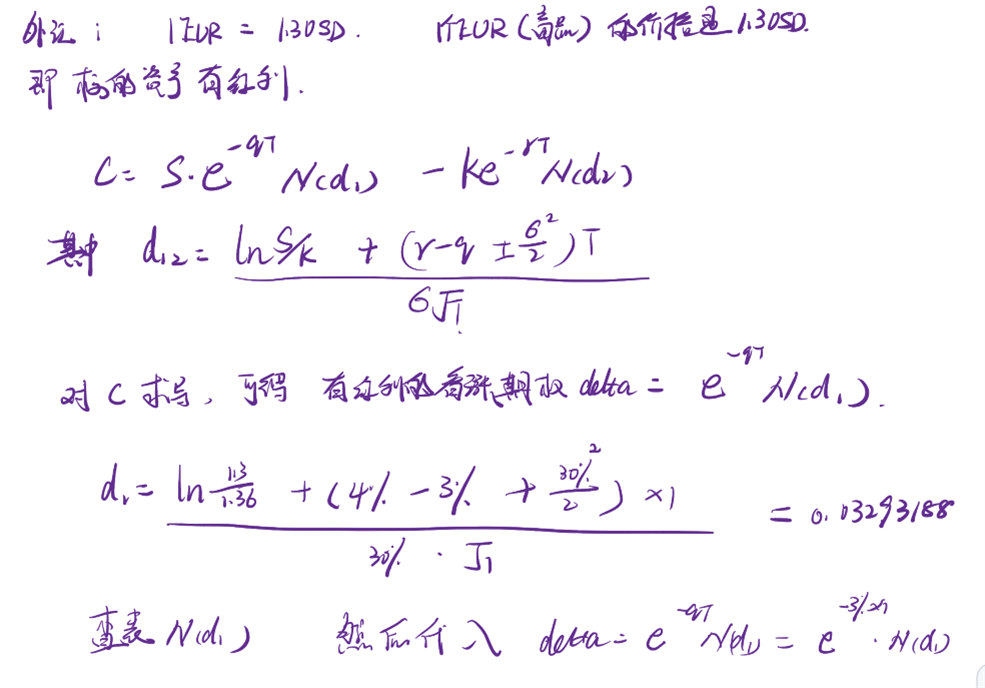 外汇： 1EUR = 1.3USD. 1EUR（商品）的价格是1.3USD.
即 标的资产 有红利.
C = S·e^{-qT} N(d₁) - Ke^{-rT} N(d₂)
其中 d₁₂ = (ln S/K + (r-q ± σ²/2)T) / (σ√T)
对 C 求导，可得 有红利的看涨期权 delta = e^{-qT} N(d₁).
d₁ = (ln 1.3/1.36 + (4% - 3% + 30%²/2) ×1) / (30% · √1) = 0.03293188
查表 N(d₁) 然后代入 delta = e^{-qT} N(d₁) = e^{-3%×1} · N(d₁)